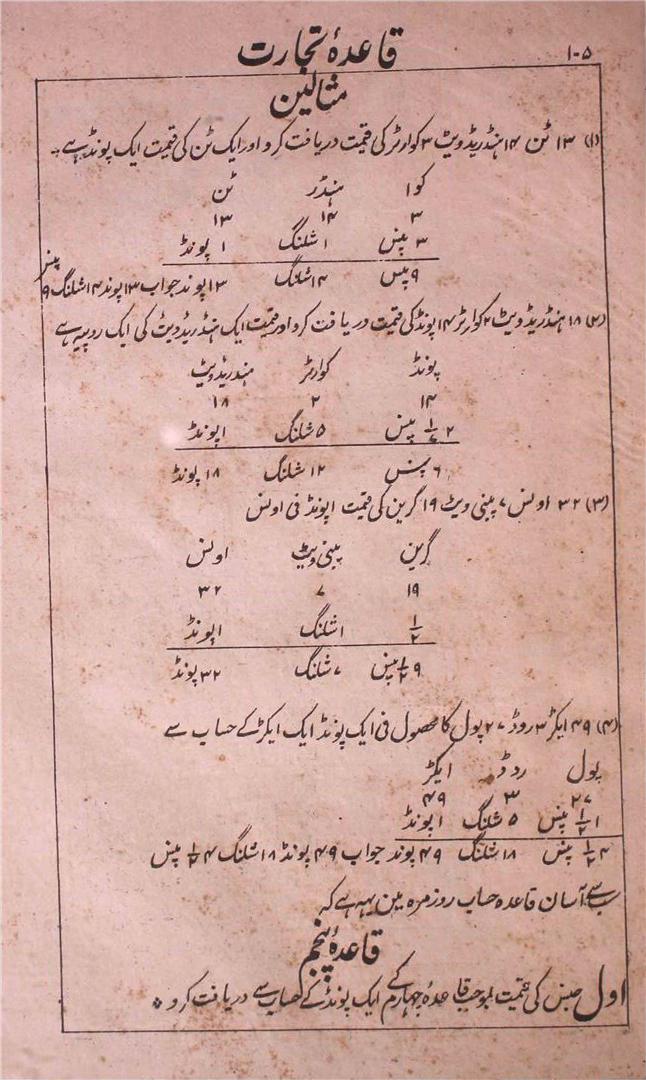 ۱۰۵
قاعدۂ تجارت
مثالین
(۱) ۱۳ ٹن ۱۴ ہنڈریڈویٹ ۳ کوارٹر کی قیمت دریافت کرو اور ایک ٹن کی قیمت ایک پونڈ ہے۔
کوا ہنڈر ٹن
۳ ۱۴ ۱۳
۳ پنس ۱ شلنگ ۱ پونڈ
۹ پنس ۱۴ شلنگ ۱۳ پوند جواب ۱۳ پوند ۱۴ شلنگ ۹ پنس
(۲) ۱۸ ہنڈریڈ ویٹ ۲ کوارٹر ۱۴ پونڈ کی قیمت دریافت کرو اور قیمت ایک ہنڈریڈویٹ کی ایک روپیہ ہے
پونڈ کوارٹر ہندریڈویٹ
۱۴ ۲ ۱۸
۲ ۱/۲ پنس ۵ شلنگ ۱ پونڈ
۶ پنس ۱۲ شلنگ ۱۸ پونڈ
(۳) ۳۲ اونس ۷ پینی ویٹ ۱۹ گرین کی قیمت ۱ پونڈ فی اونس
گرین پینی ویٹ اونس
۱۹ ۷ ۳۲
۱/۲ ۱ شلنگ ۱ پونڈ
۹ ۱/۲ پنس ۷ شلنگ ۳۲ پونڈ
(۴) ۴۹ ایکڑ ۳ روڈ ۲۷ پول کا محصول فی ایک پونڈ ایک ایکڑ کے حساب سے
پول روڈ ایکڑ
۲۷ ۳ ۴۹
۱ ۱/۲ پنس ۵ شلنگ ۱ پونڈ
۴ ۱/۲ پنس ۱۸ شلنگ ۴۹ پوند جواب ۴۹ پونڈ ۱۸ شلنگ ۴ ۱/۲ پنس
سب سے آسان قاعدہ حساب روزمرہ مین یہہ ہے کہ
قاعدۂ پنجم
اول جنس کی قیمت بموجب قاعدہ چہارم کے ایک پونڈ کے حساب سے دریافت کرو ٭